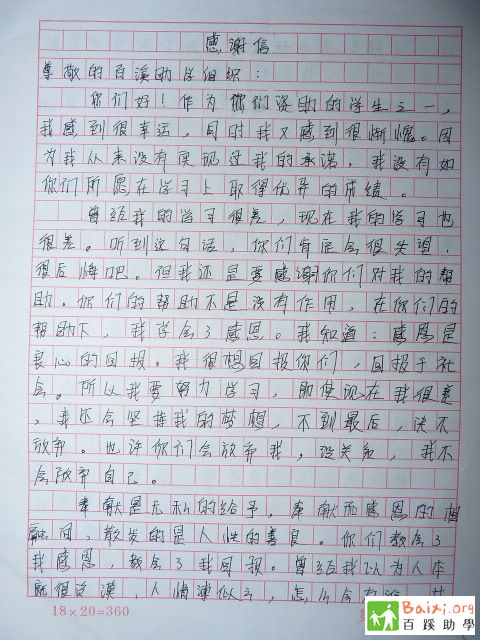 感谢信
尊敬的百溪助学组织：
你们好！作为你们资助的学生之一，
我感到很幸运，同时我又感到很惭愧。因
为我从来没有实现过我的承诺，我没有如
你们所愿在学习上取得优异的成绩。
曾经我的学习很差，现在我的学习也
很差。听到这句话，你们有底会很失望，
很后悔吧。但我还是要感谢你们对我的帮
助。你们的帮助不是没有作用，在你们的
帮助下，我学会了感恩。我知道：感恩是
良心的回报。我很想回报你们，回报于社
会。所以我要努力学习，即使现在我很差
，我还会坚持我的梦想，不到最后，决不
放弃。也许你们会放弃我，没关系，我不
会放弃自己。
奉献是无私的给予，奉献而感恩的相
融间，散发的是人性的善良。你们教会了
我感恩，教会了我回报。曾经我以为人本
就很定漠，人情薄似云，怎么会有
18×20=360
Baixi.org
百蹊助學